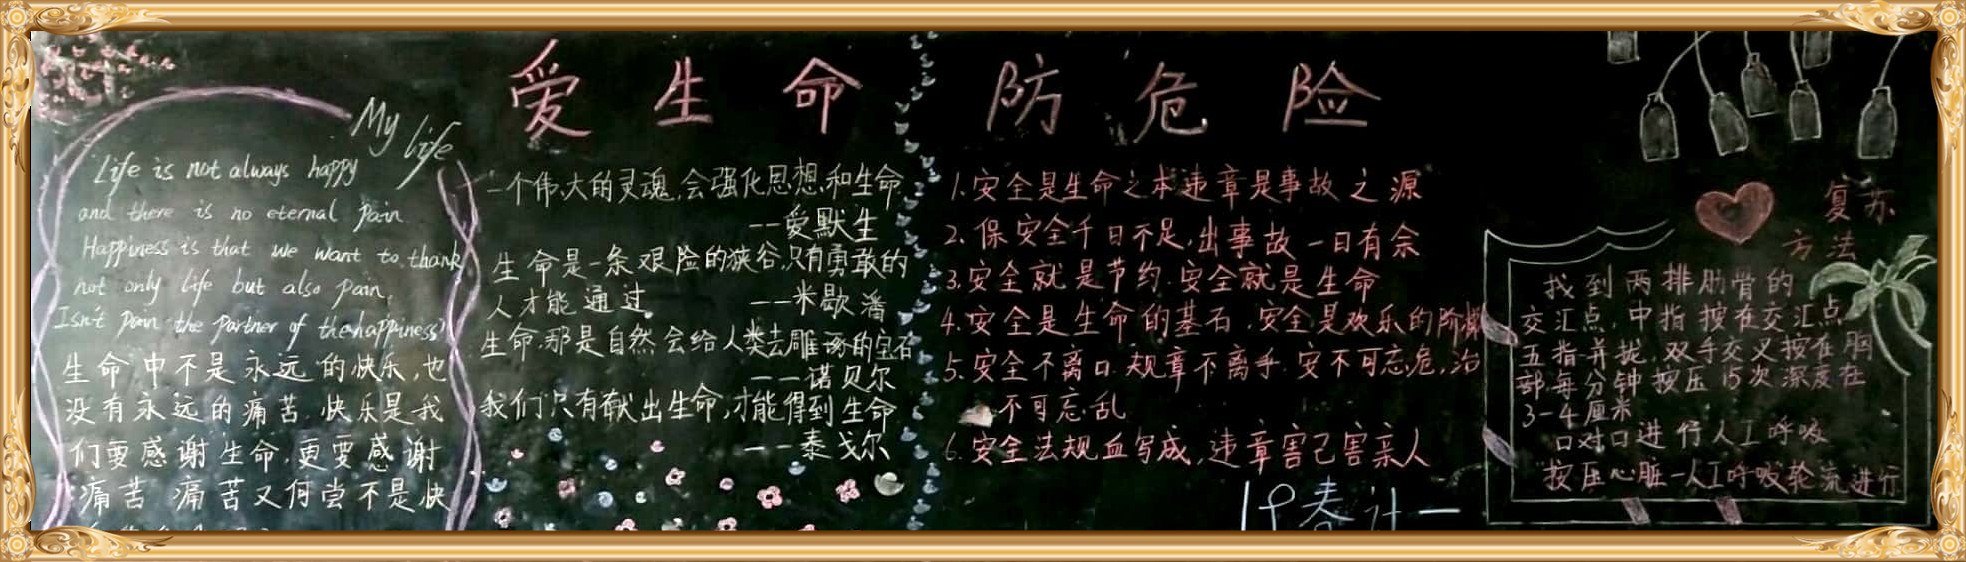 爱生命 防危险
My life
Life is not always happy
and there is no eternal pain
Happiness is that we want to thank
not only life but also pain,
Isn't pain the partner of the happiness?
生命中不是永远的快乐,也
没有永远的痛苦.快乐是我
们要感谢生命,更要感谢
痛苦 痛苦又何尝不是快
一个伟大的灵魂,会强化思想和生命
--爱默生
生命是一条艰险的狭谷,只有勇敢的
人才能通过。
--米歇潘
生命,那是自然会给人类去雕琢的宝石
--诺贝尔
我们只有献出生命,才能得到生命
--泰戈尔
1.安全是生命之本违章是事故之源
2.保安全千日不足,出事故一日有余
3.安全就是节约.安全就是生命
4.安全是生命的基石,安全是欢乐的阶梯
5.安全不离口.规章不离手.安不可忘危,治
不可忘乱
6.安全法规血写成,违章害己害亲人
伊春计一
复苏
方法
找到两排肋骨的
交汇点,中指按在交汇点
五指并拢,双手交叉按在胸
部.每分钟按压15次深度在
3-4厘米
口对口进行人工呼吸
按压心脏-人工呼吸轮流进行